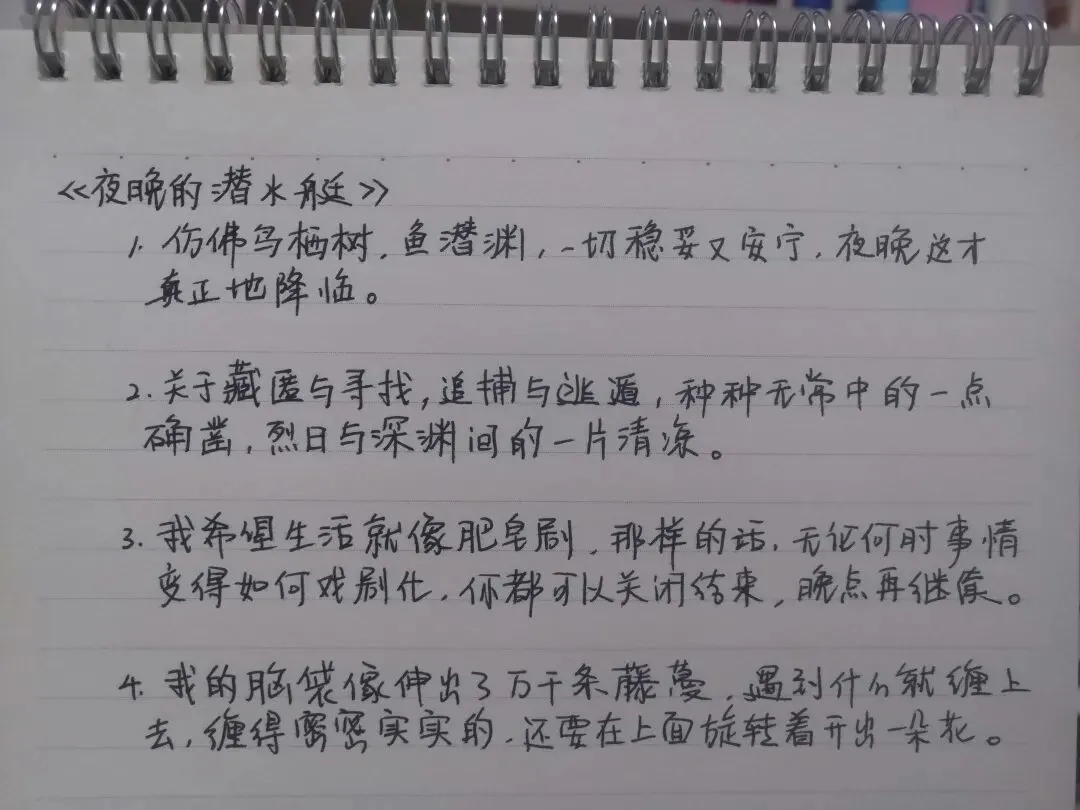 《夜晚的潜水艇》
1. 仿佛鸟栖树，鱼潜渊，一切稳妥又安宁，夜晚这才
真正地降临。
2. 关于藏匿与寻找，追捕与逃遁，种种无常中的一点
确凿，烈日与深渊间的一片清凉。
3. 我希望生活就像肥皂剧，那样的话，无论何时事情
变得如何戏剧化，你都可以关闭结束，晚点再继续。
4. 我的脑袋像伸出了万千条藤蔓，遇到什么就缠上
去，缠得密密实实的，还要在上面旋转着开出一朵花。